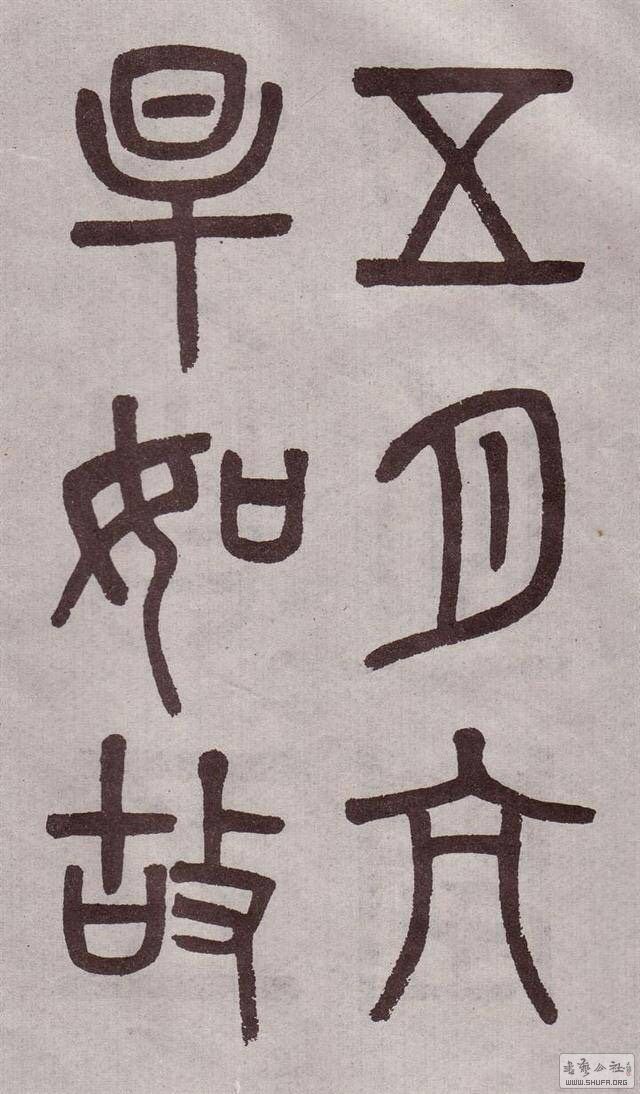 五月亢
旱如故
书藝公社
WWW.SHUFA.ORG